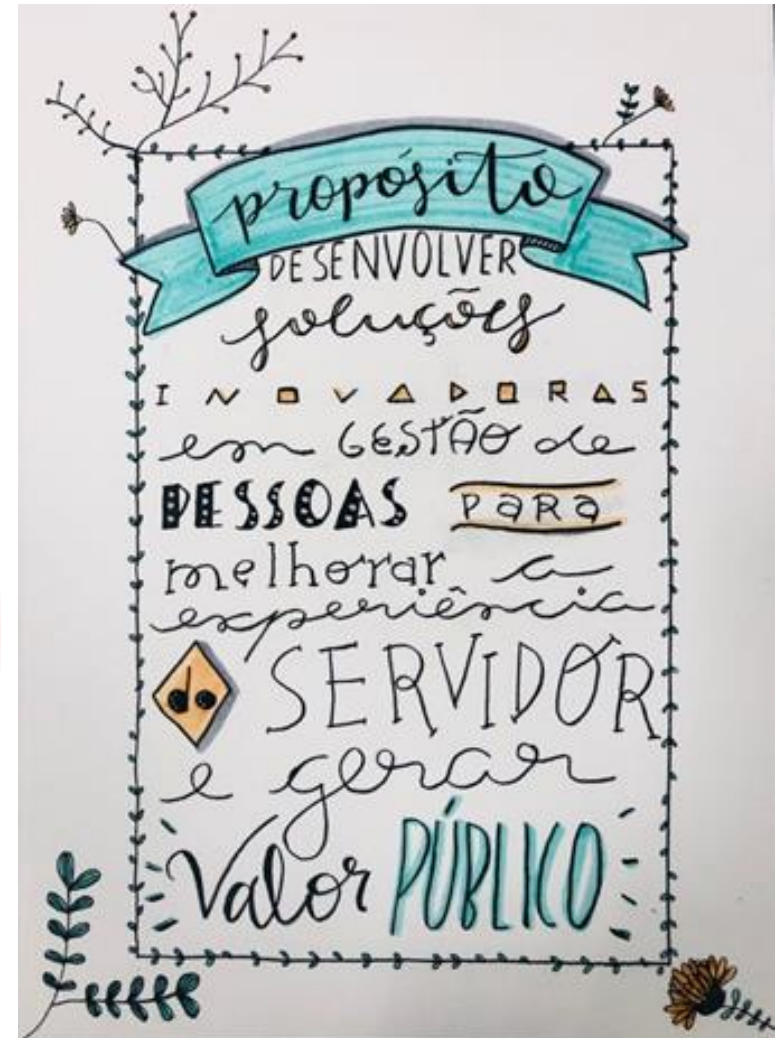 propósito
DESENVOLVER
soluções
INOVADORAS
em GESTÃO de
PESSOAS PARA
melhorar a
experiência
do SERVIDOR
e gerar
Valor PÚBLICO